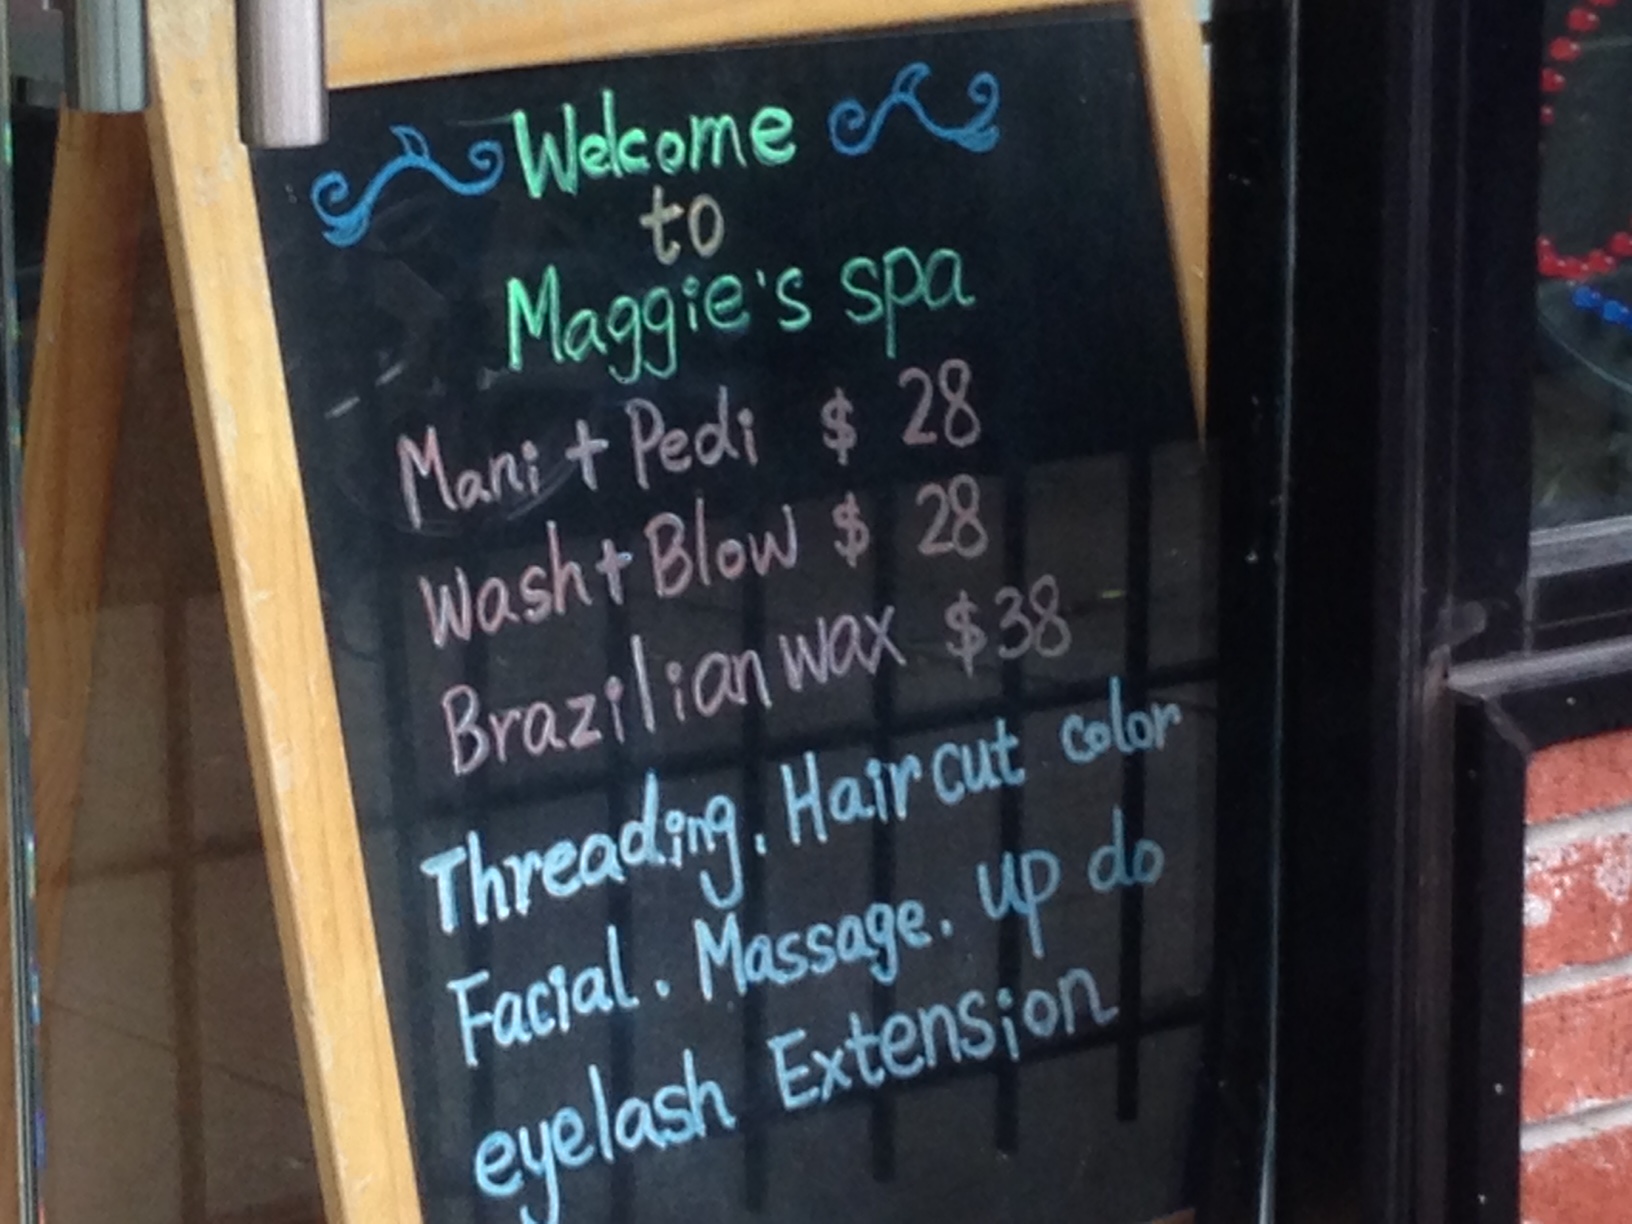 Welcome
to
Maggie's spa
Mani + Pedi $ 28
Wash + Blow $ 28
Brazilian wax $38
Threading. Haircut color
Facial. Massage. up do
eyelash Extension